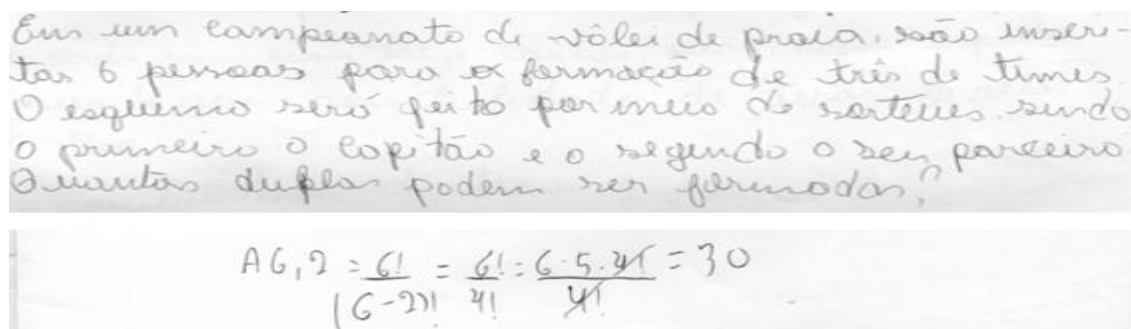 Em um campeonato de vôlei de praia, são inscri-
tas 6 pessoas para a formação de três de times.
O esquema será feito por meio de sorteios sendo
o primeiro o capitão e o segundo o seu parceiro
Quantas duplas podem ser formadas?
A6,2 = 6!/(6-2)! = 6!/4! = 6·5·4!/4! = 30